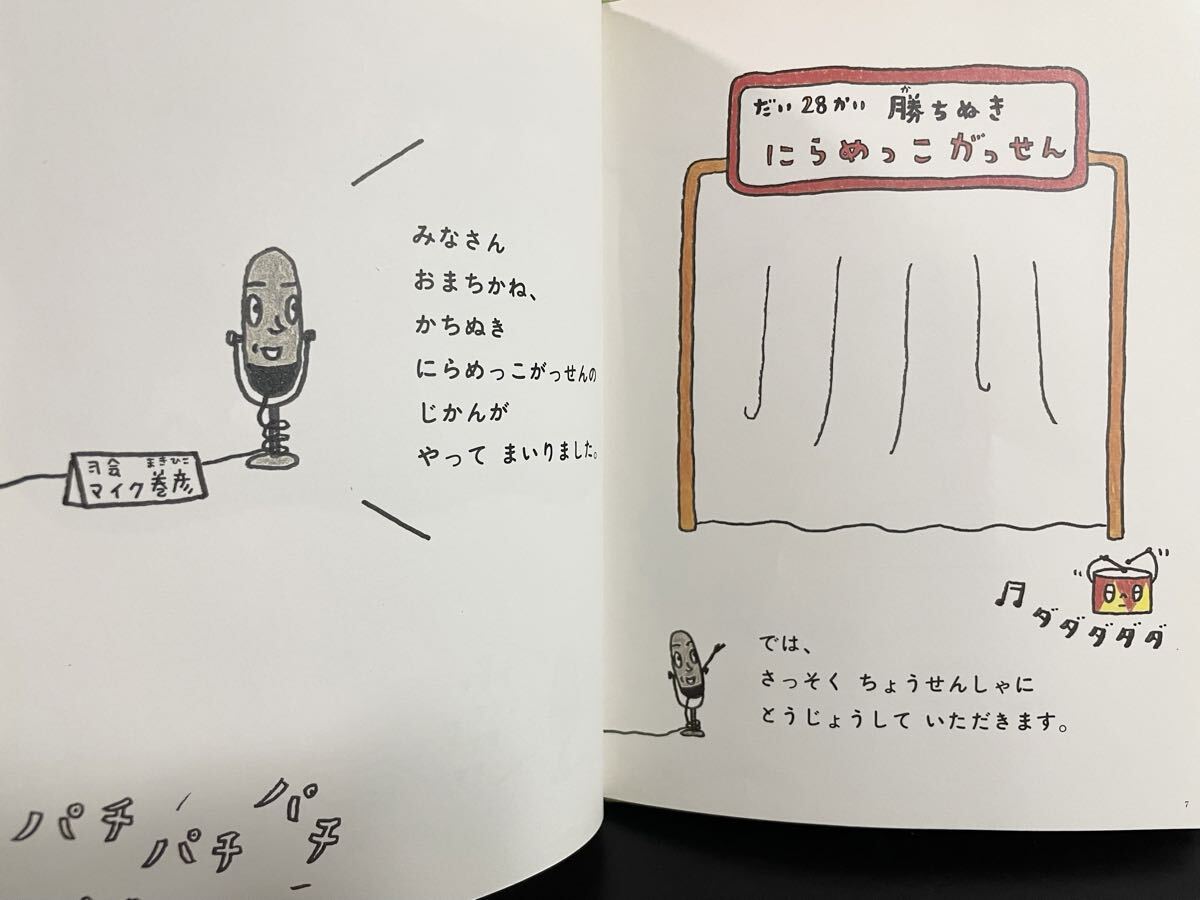 みなさん
おまちかね、
かちぬき
にらめっこがっせんの
じかんが
やって まいりました。
ヨ会 まきひこ
マイク巻彦
パチ
パチ
パチ
だい28かい 勝ちぬき
か
にらめっこ がっせん
ダダダダダ
では、
さっそく ちょうせんしゃに
とうじょうして いただきます。
7